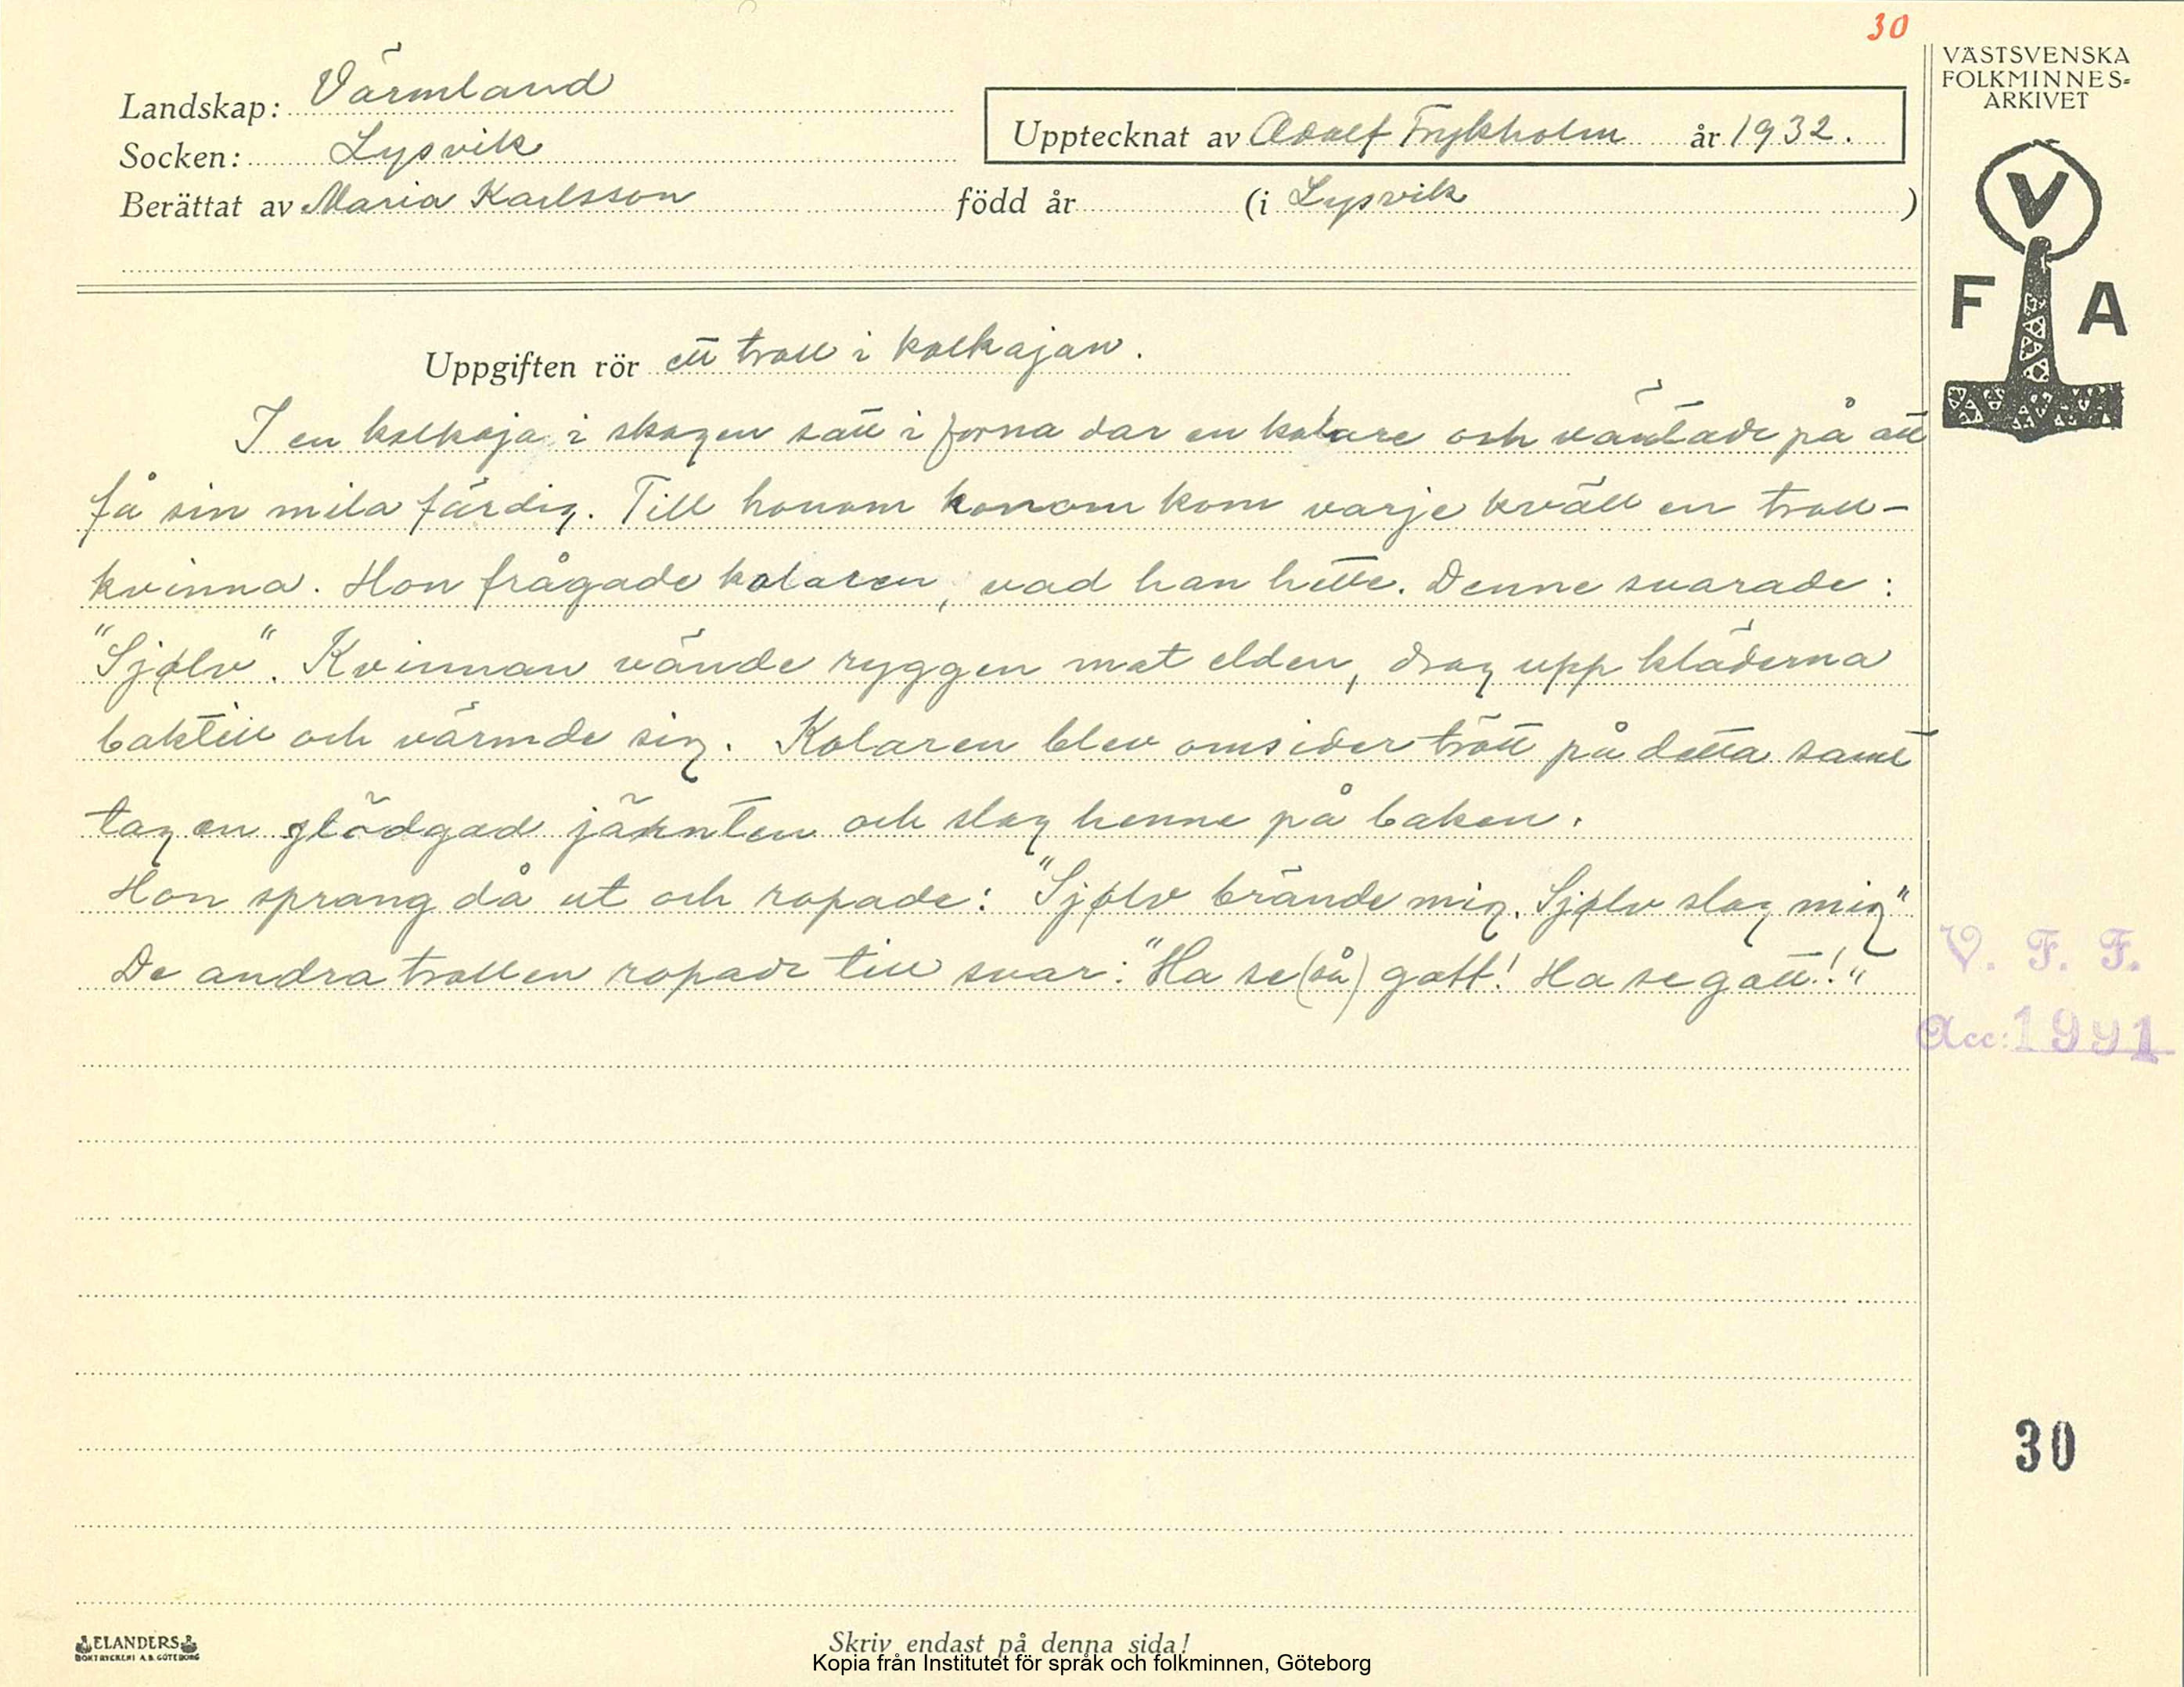 30
VÄSTSVENSKA
FOLKMINNES-
ARKIVET
Landskap: Värmland
Upptecknat av Adolf Frykholm år 1932.
Socken: Lysvik
Berättat av Maria Karlsson född år (i Lysvik )
V
F A
Uppgiften rör ett troll i kolkojan.
I en kolkoja i skogen satt i forna dar en kolare och väntade på att
få sin mila färdig. Till honom honom kom varje kväll en troll-
kvinna. Hon frågade kolaren, vad han hette. Denne svarade:
"Sjølv". Kvinnan vände ryggen mot elden, drog upp kläderna
baktill och värmde sig. Kolaren blev omsider trött på detta samt
tog en glödgad järnten och slog henne på baken.
Hon sprang då ut och ropade: "Sjølv brände mig. Sjølv slog mig"
De andra trollen ropade till svar: "Ha se (så) gott! Ha se gott!"
V. F. F.
Acc: 1991
30
ELANDERS
BOKTRYCKERI A.B. GÖTEBORG
Skriv endast på denna sida!
Kopia från Institutet för språk och folkminnen, Göteborg